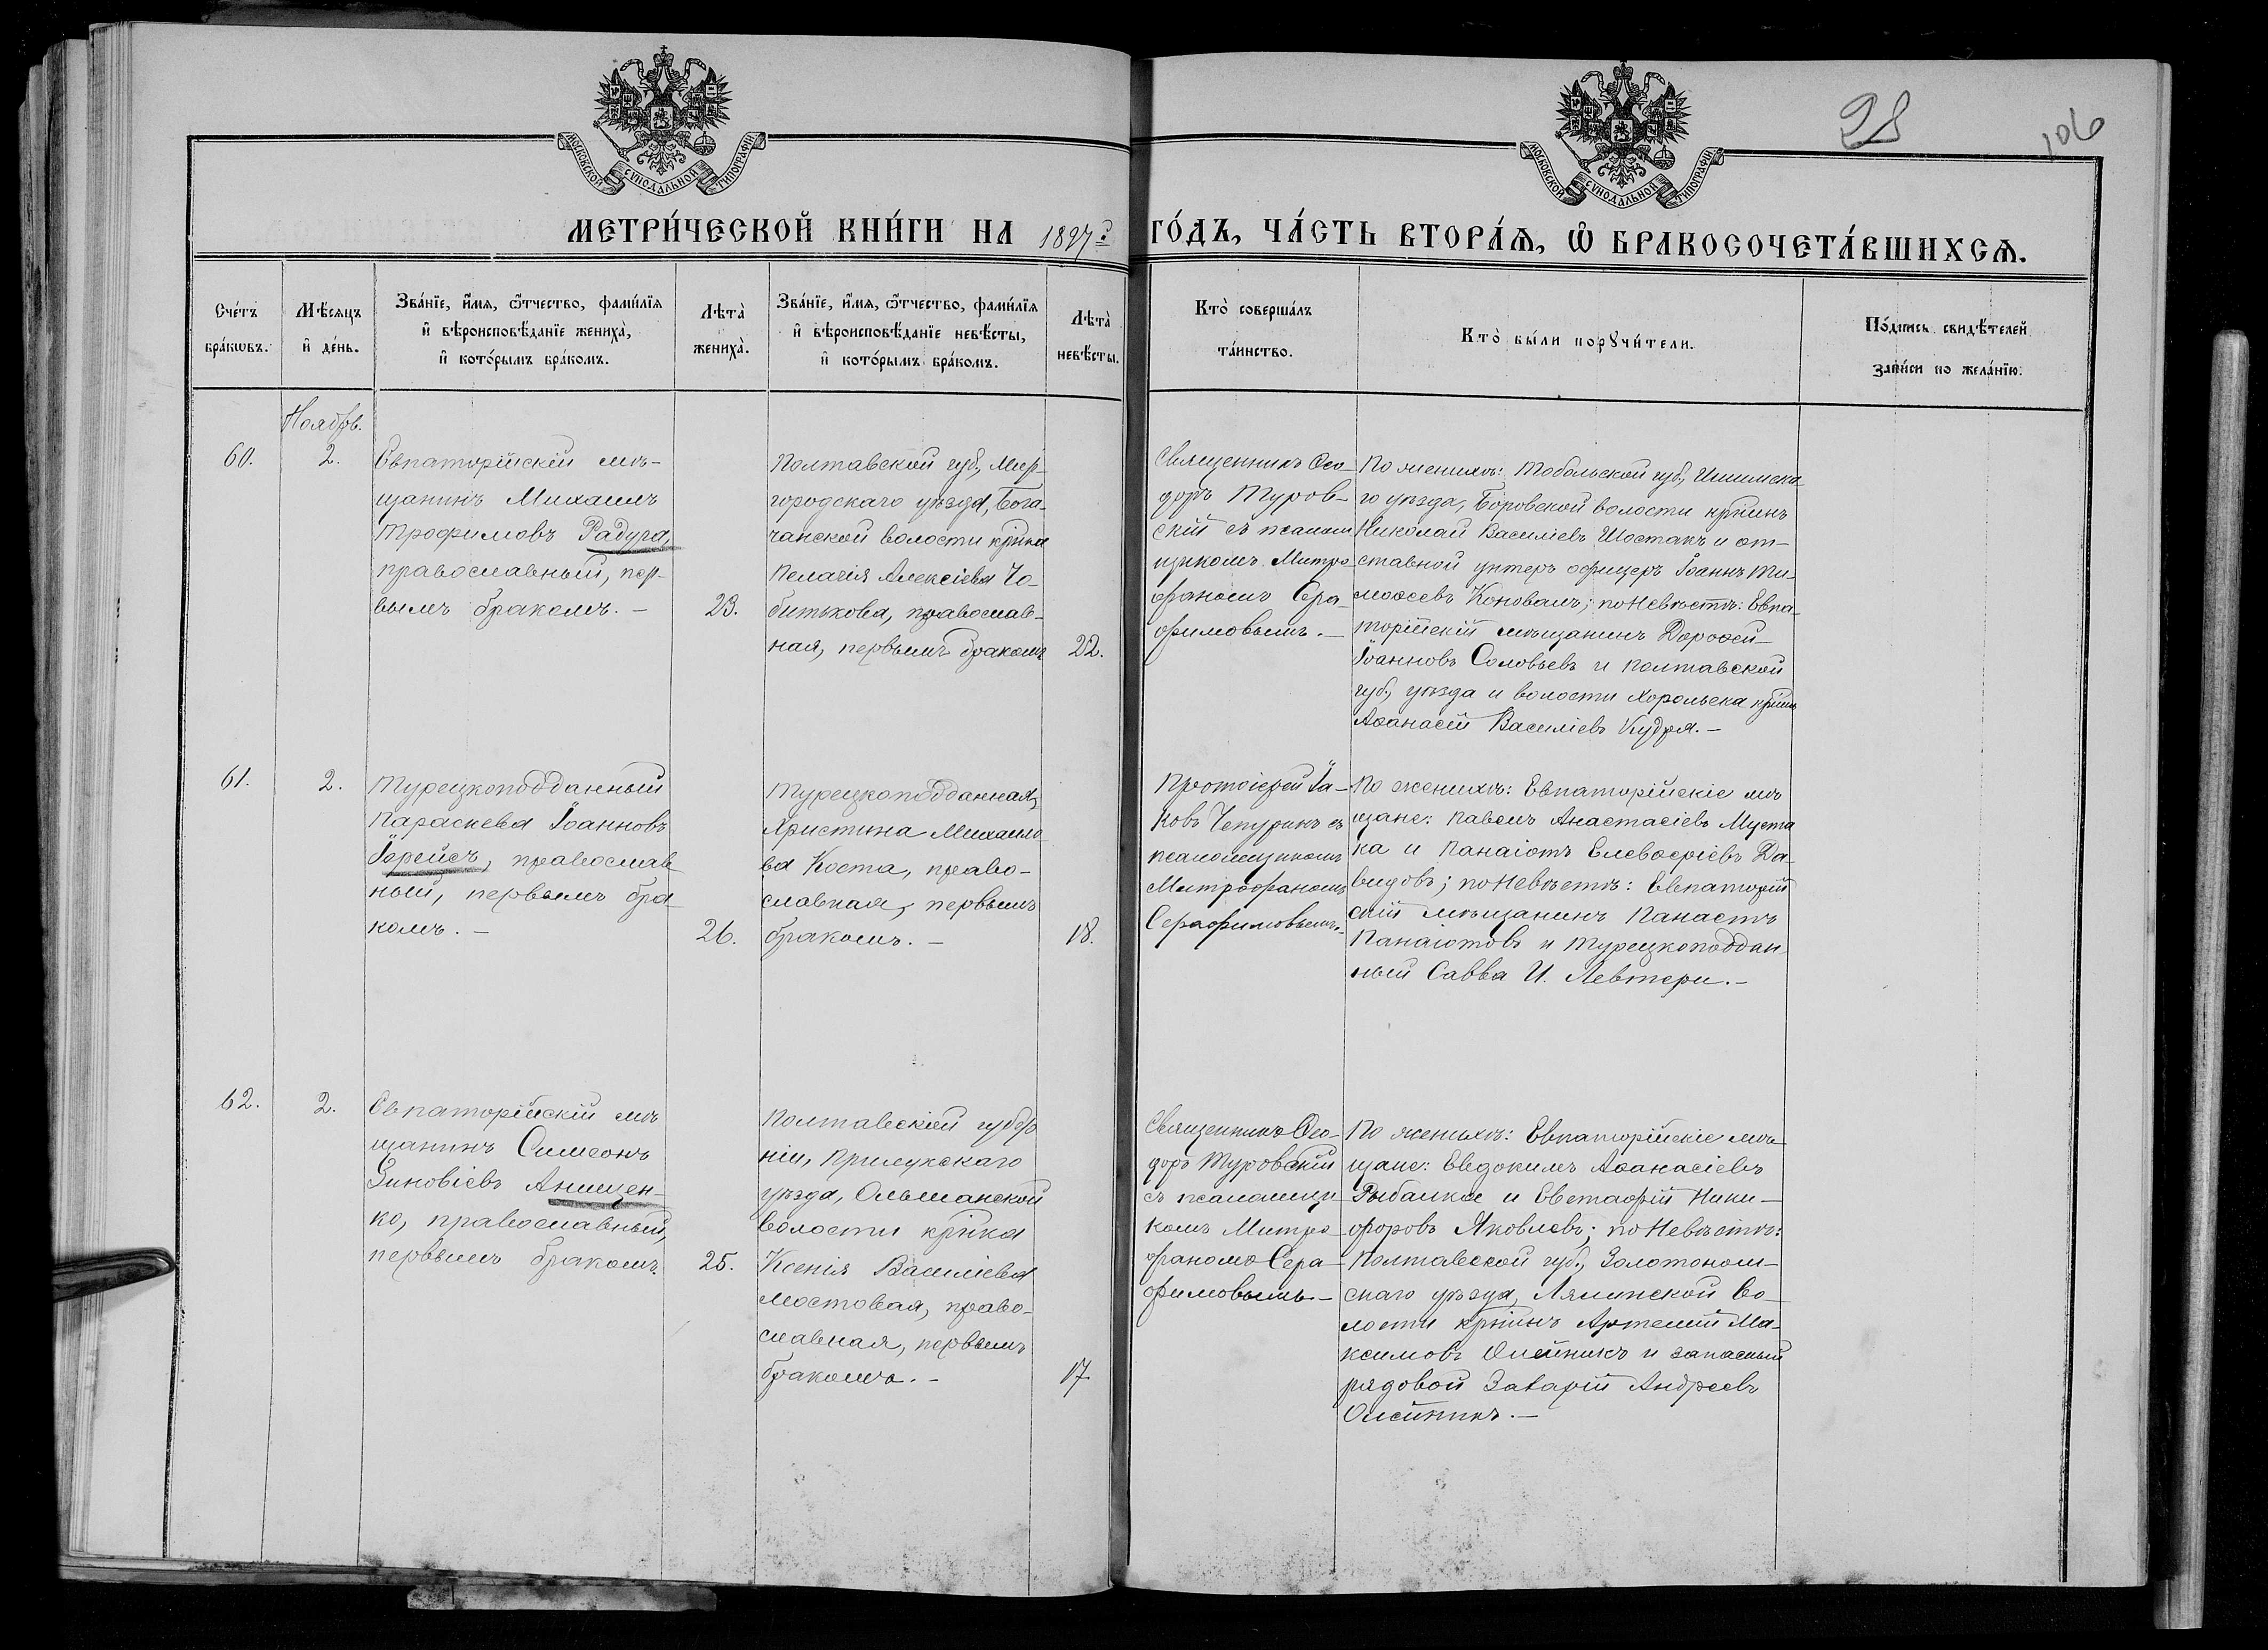 МОСКОВСКОЙ СѴНОДАЛЬНОЙ ТИПОГРАФІИ
МОСКОВСКОЙ СѴНОДАЛЬНОЙ ТИПОГРАФІИ
28
106
МЕТРИ́ЧЕСКОЙ КНИ́ГИ НА 1897 ГО́ДЪ, ЧА́СТЬ ВТОРА́Ѧ, Ѽ БРАКОСОЧЕТА́ВШИХСѦ.
Сче́тъ
бра́кωвъ.
Мѣ́сяцъ
и҆ де́нь.
Зва́нїе, и҆́мя, ѻ҆́тчество, фами́лїя
и҆ вѣроисповѣ́данїе жениха̀,
и҆ кото́рымъ бра́комъ.
Лѣта̀
жениха̀.
Зва́нїе, и҆́мя, ѻ҆́тчество, фами́лїя
и҆ вѣроисповѣ́данїе невѣ́сты,
и҆ кото́рымъ бра́комъ.
Лѣта̀
невѣ́сты.
Кто̀ соверша́лъ
та́инство.
Кто̀ бы́ли порꙋчи́тели.
По́дпись свидѣ́телей
за́писи по жела́нїю.
Ноябрь.
60.
2.
Евпаторійскій мѣ-
щанинъ Михаилъ
Трофимовъ Радуга,
православный, пер-
вымъ бракомъ. –
23.
Полтавской губ., Мир-
городскаго уѣзда, Бога-
чанской волости кр‑нка
Пелагія Алексіева Чо-
битькова, православ-
ная, первымъ бракомъ
22.
Священникъ Ѳео-
доръ Туров-
скій съ псалом
щикомъ Митро
фаномъ Сера-
фимовымъ. –
По женихѣ: Тобольской губ., Ишимска-
го уѣзда, Боровской волости кр‑нинъ
Николай Василіевъ Шостакъ и от-
ставной унтеръ офицеръ Іоаннъ Ти-
моѳеевъ Коновалъ; по невѣстѣ: Евпа-
торійскій мѣщанинъ Дороѳей
Іоанновъ Соловьевъ и Полтавской
губ., уѣзда и волости Хорольска кр‑нинъ
Аѳанасій Василіевъ Кудря. –
61.
2.
Турецкоподданный
Параскева Іоанновъ
Іерейсъ, православ
ный, первымъ бра
комъ. –
26.
Турецкоподданная,
Христина Михаило
ва Коста, право-
славная, первымъ
бракомъ. –
18.
Протоіерей Іа-
ковъ Чепуринъ съ
псаломщикомъ
Митрофаномъ
Серафимовымъ.
По женихѣ: Евпаторійскіе мѣ
щане: Павелъ Анастасіевъ Муста
ка и Панаіотъ Елевѳеріевъ Да-
видовъ; по невѣстѣ: Евпаторій
скій мѣщанинъ Панастъ
Панаіотовъ и Турецкоподдан-
ный Савва И. Левтери. –
62.
2.
Евпаторійскій мѣ
щанинъ Симеонъ
Зиновіевъ Анищен-
ко, православный,
первымъ бракомъ.
25.
Полтавской губер
ніи, Прилукскаго
уѣзда, Ольшанской
волости кр‑нка
Ксенія Василіева
Мостовая, право-
славная, первымъ
бракомъ. –
17.
Священникъ Ѳео-
доръ Туровскій
съ псаломщи
комъ Митро
фаномъ Сера-
фимовымъ –
По женихѣ: Евпаторійскіе мѣ-
щане: Евдокимъ Аѳанасіевъ
Рыбалка и Евстафій Ники-
форовъ Яковлевъ; по невѣстѣ:
Полтавской губ., Золотонош-
скаго уѣзда, Лялинской во-
лости кр‑нинъ Артемій Ма-
ксимовъ Олейникъ и запасный
рядовой Захарій Андреевъ
Олейникъ. –